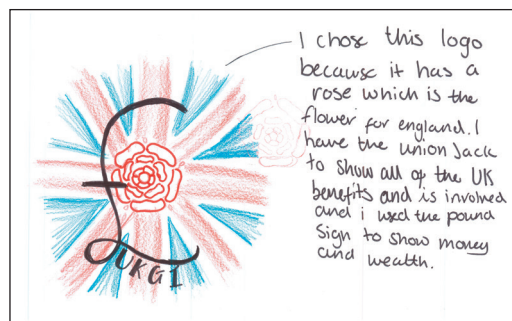 I chose this logo
because it has a
rose which is the
flower for england. I
have the union Jack
to show all of the UK
benefits and is involved
and i used the pound
sign to show money
and wealth.
£
UKGI